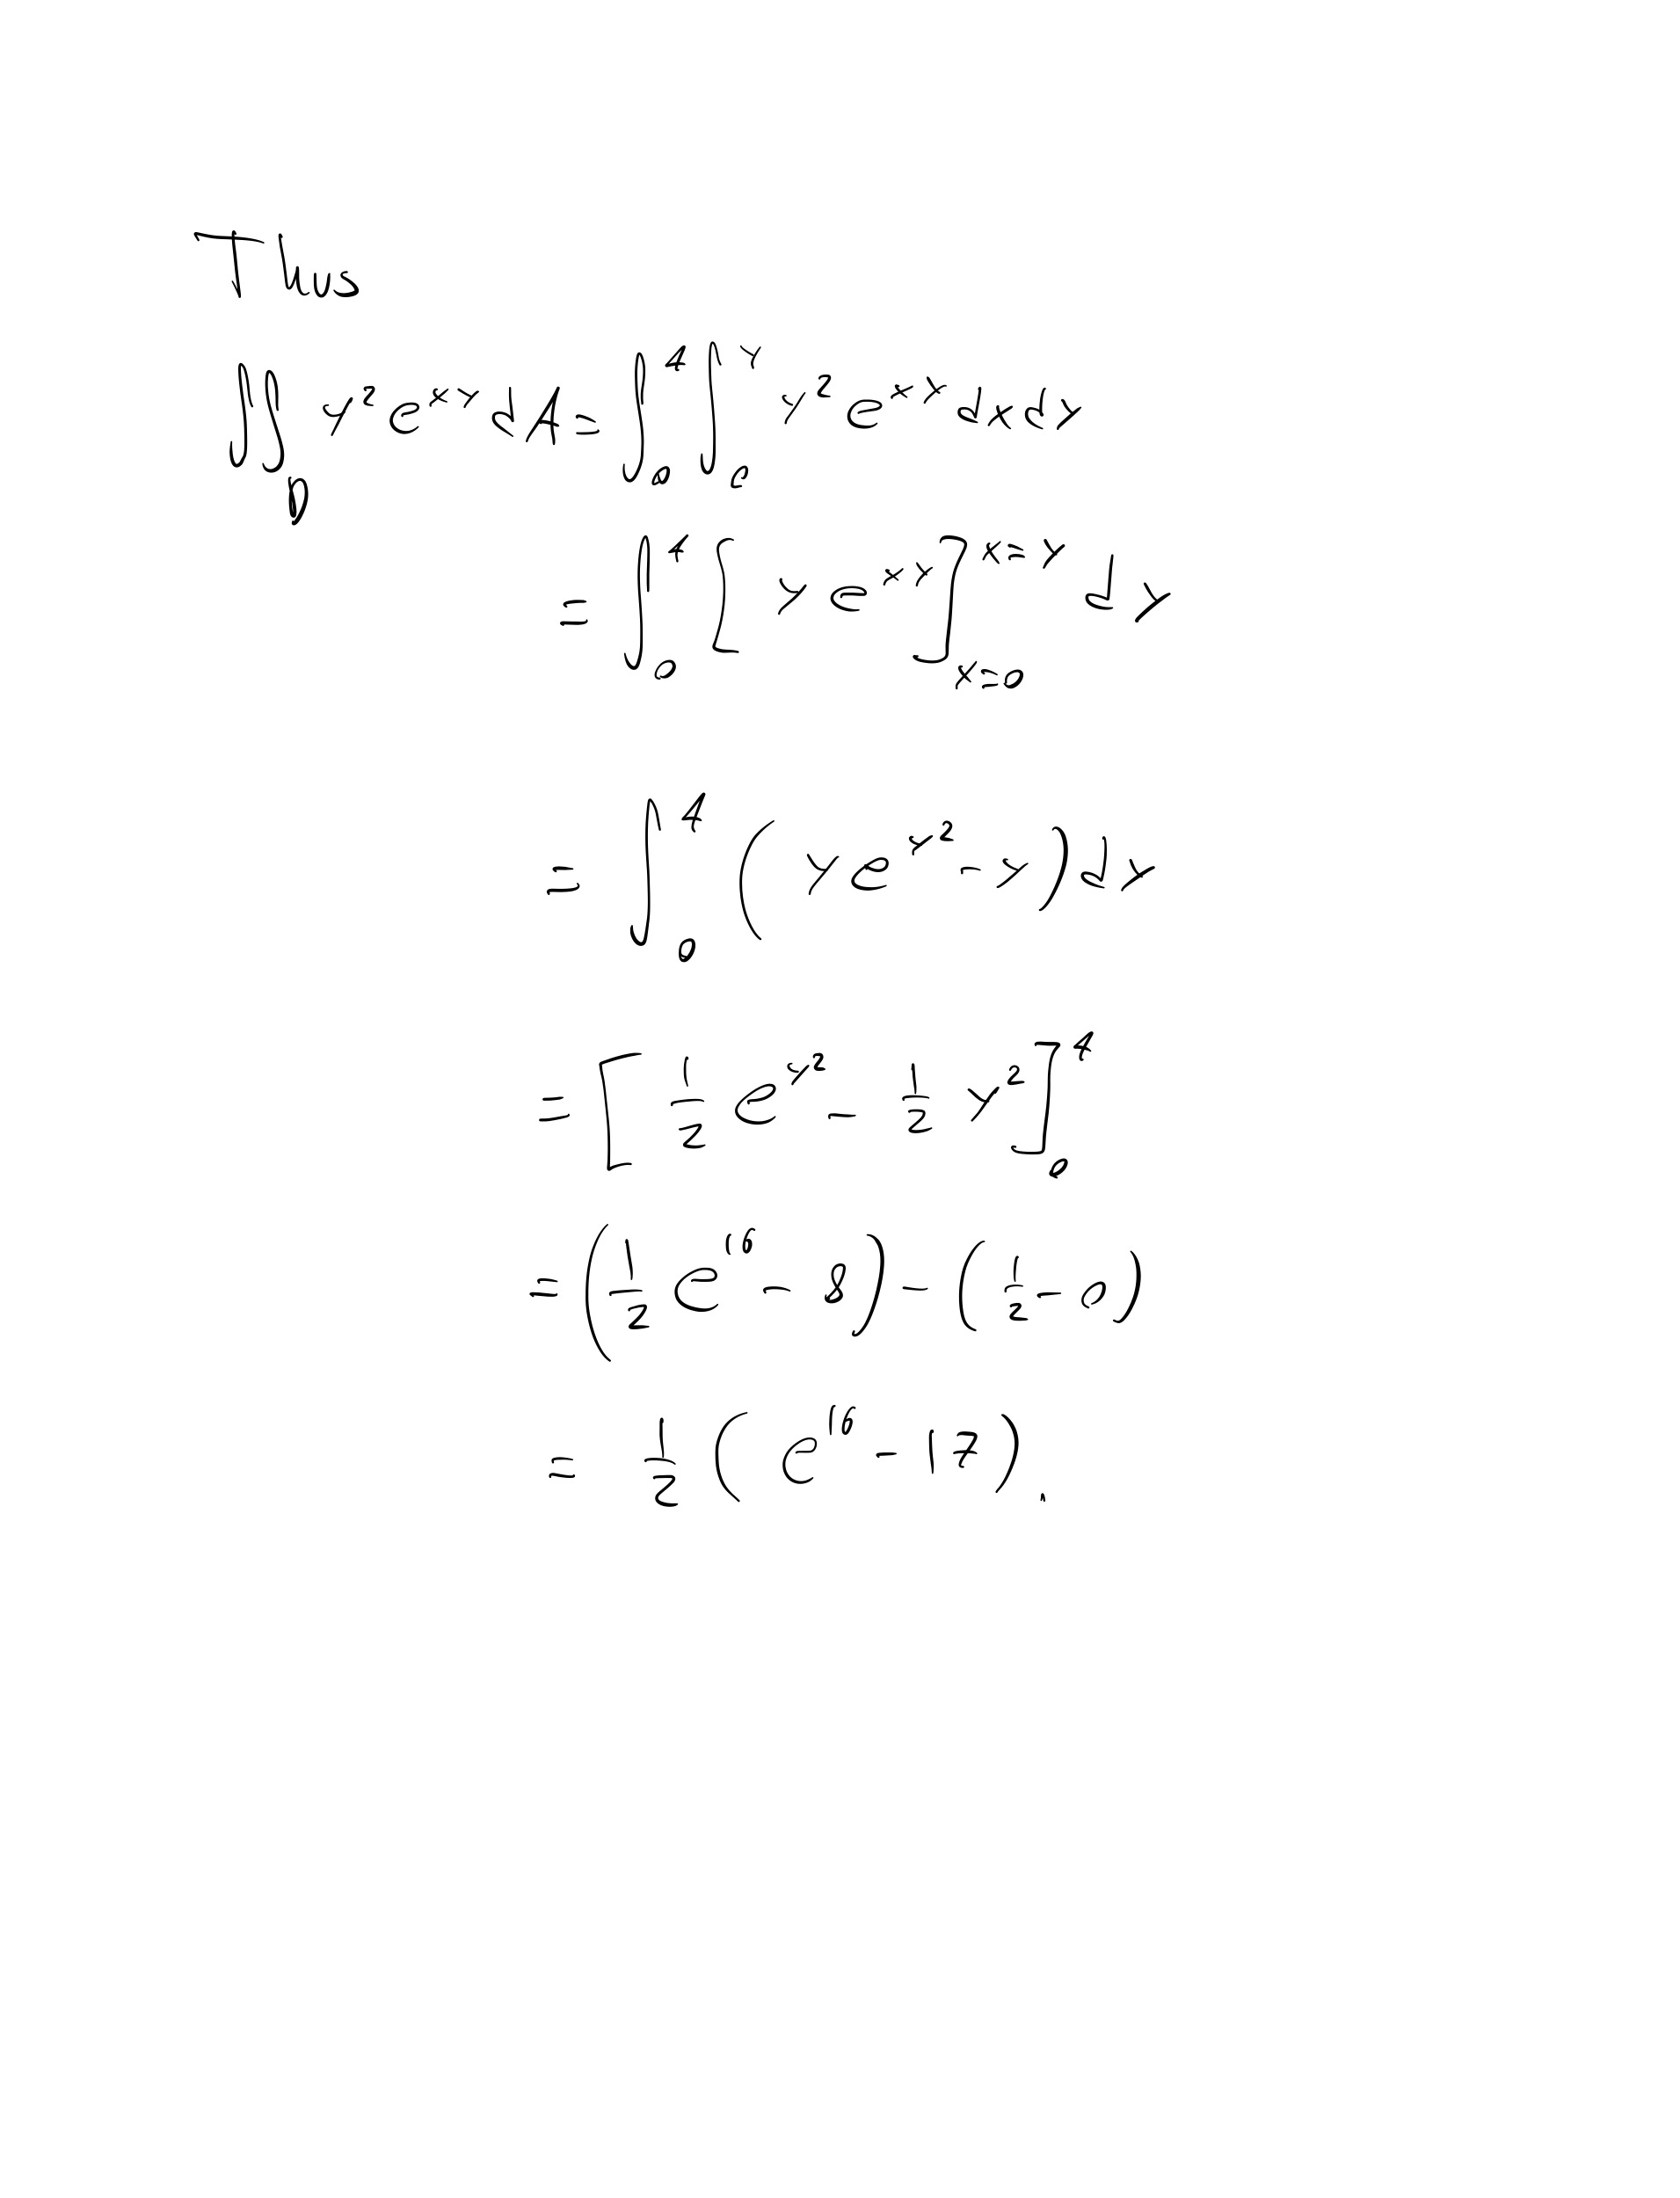 Thus
∬_D y² e^{xy} dA = ∫_0^4 ∫_0^y y² e^{xy} dx dy
= ∫_0^4 [ y e^{xy} ]_{x=0}^{x=y} dy
= ∫_0^4 ( y e^{y²} - y ) dy
= [ 1/2 e^{y²} - 1/2 y² ]_0^4
= ( 1/2 e^{16} - 8 ) - ( 1/2 - 0 )
= 1/2 ( e^{16} - 17 ).